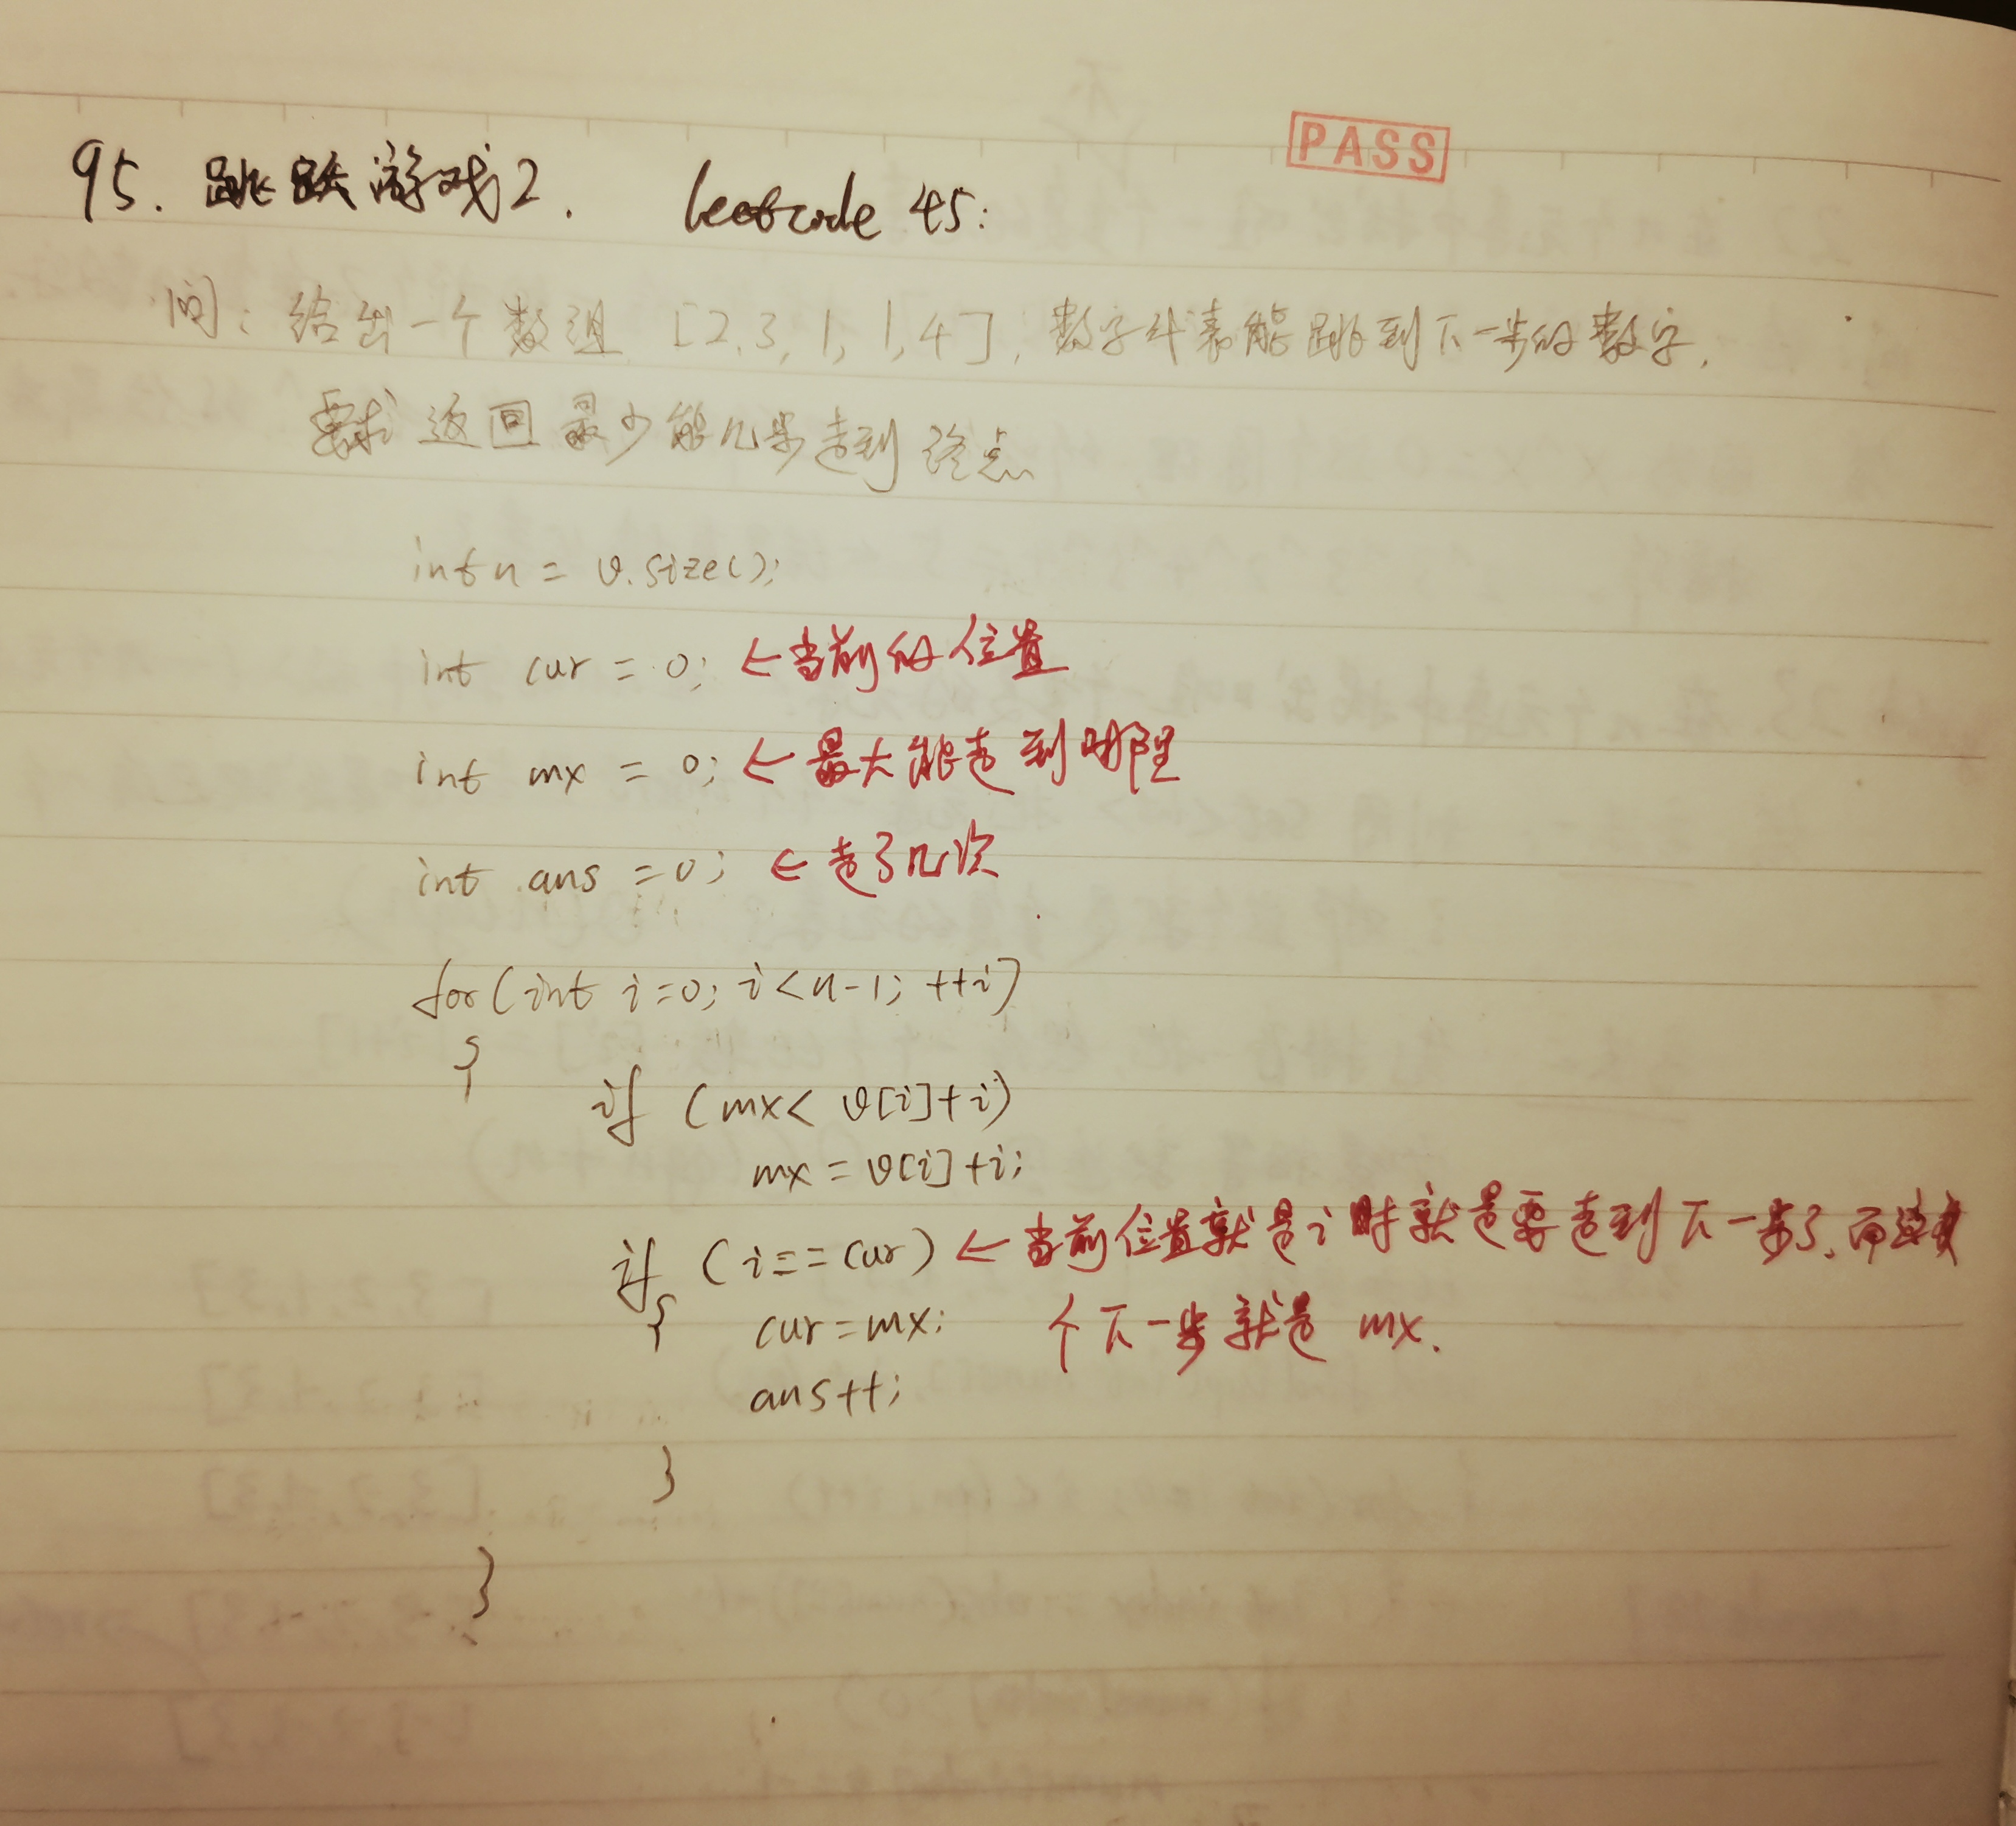 PASS
95. 跳跃游戏2. leetcode 45:
问: 给出一个数组 [2,3,1,1,4], 数字代表能跳到下一步的数字,
要求返回最少能几步走到终点
int n = v.size();
int cur = 0; ←当前的位置
int mx = 0; ←最大能走到哪里
int ans = 0; ←走了几次
for(int i=0; i<n-1; ++i)
{
if (mx< v[i]+i)
mx = v[i]+i;
if (i==cur) ←当前位置就是i时就是要走到下一步了, 而这
{ cur=mx; 个下一步就是 mx.
ans++;
}
}